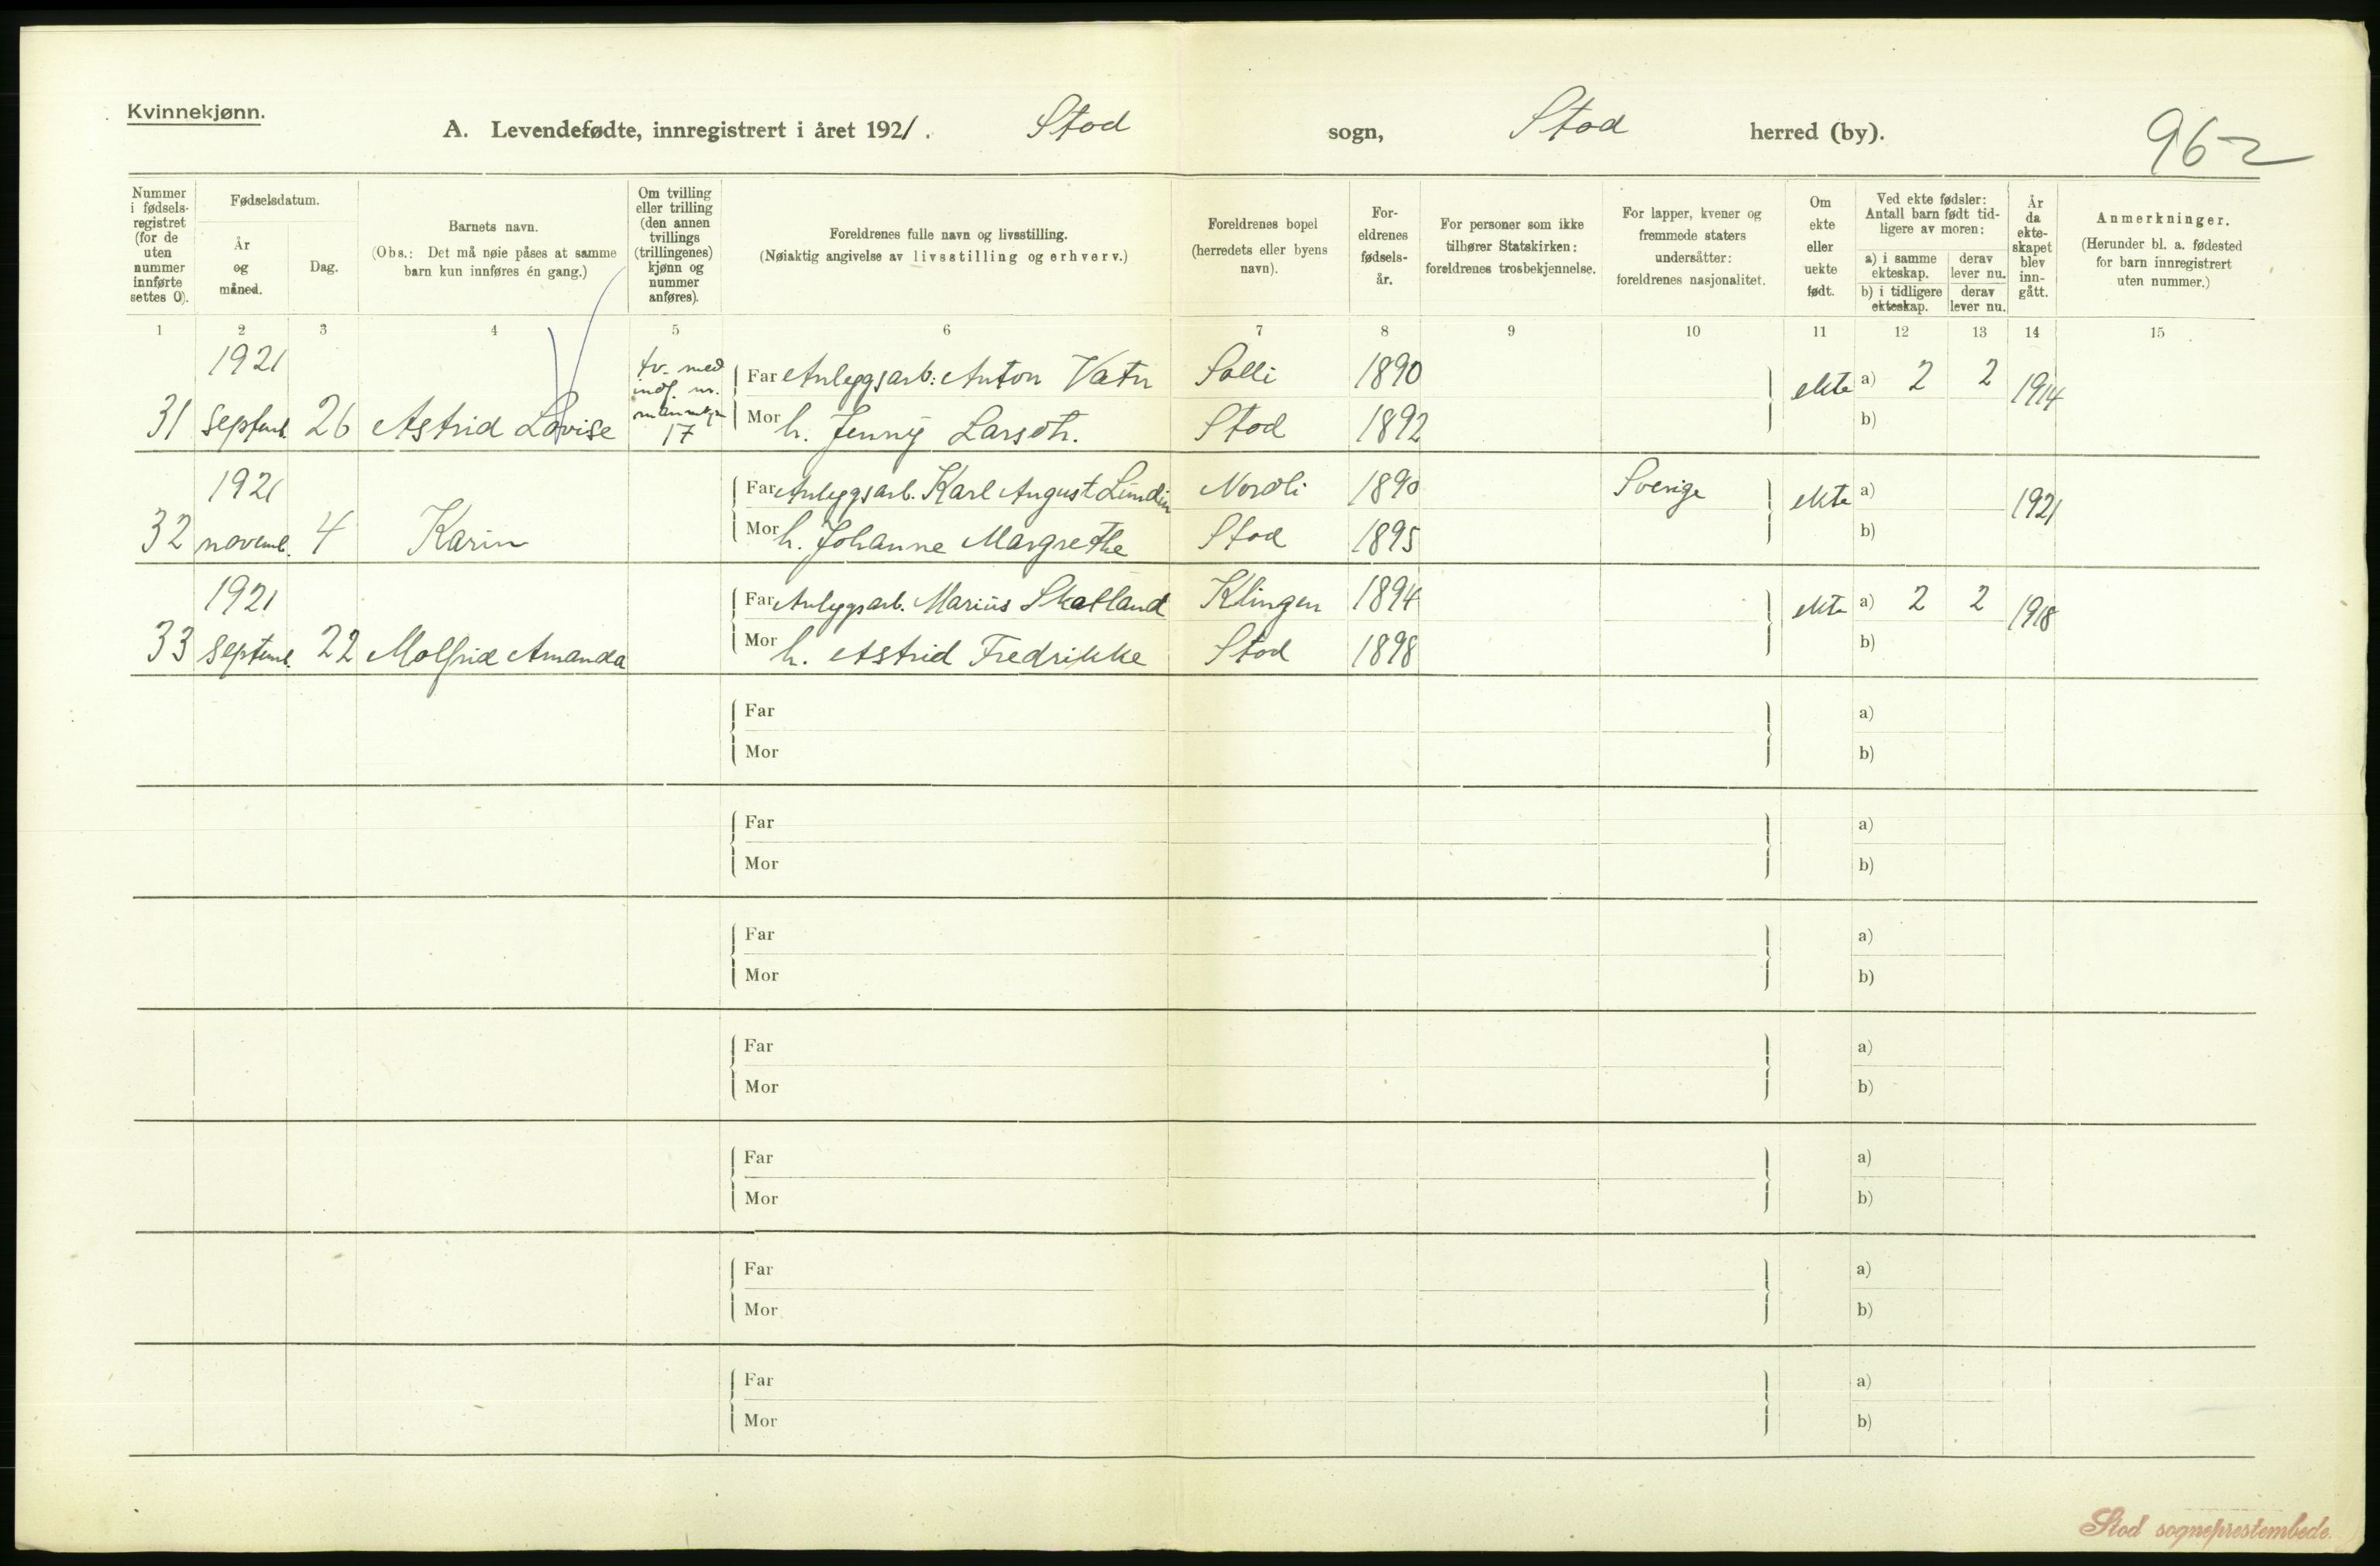 Kvinnekjønn.
A. Levendefødte, innregistrert i året 1921. Stod sogn, Stod herred (by).
962
Nummer i fødsels-registret (for de uten nummer innførte settes 0).
Fødselsdatum.
År og måned.
Dag.
Barnets navn.
(Obs.: Det må nøie påses at samme barn kun innføres én gang.)
Om tvilling eller trilling (den annen tvillings (trillingenes) kjønn og nummer anføres).
Foreldrenes fulle navn og livsstilling.
(Nøiaktig angivelse av livsstilling og erhverv.)
Foreldrenes bopel (herredets eller byens navn).
For-eldrenes fødsels-år.
For personer som ikke tilhører Statskirken: foreldrenes trosbekjennelse.
For lapper, kvener og fremmede staters undersåtter: foreldrenes nasjonalitet.
Om ekte eller uekte født.
Ved ekte fødsler: Antall barn født tid-ligere av moren:
a) i samme ekteskap.
derav lever nu.
b) i tidligere ekteskap.
derav lever nu.
År da ekte-skapet blev inn-gått.
Anmerkninger.
(Herunder bl. a. fødested for barn innregistrert uten nummer.)
1 2 3 4 5 6 7 8 9 10 11 12 13 14 15
1921 tv. med Far Anleggsarb: Anton Vatn Solli 1890 ekte a) 2 2 1914
31 septemb. 26 Astrid Lovise 17 Mor h. Jenny Larsdt. Stod 1892 b)
1921 Far Anleggsarb. Karl August Lundin Nordli 1890 Sverige ekte a) 1921
32 novemb. 4 Karin Mor h. Johanne Margrethe Stod 1895 b)
1921 Far Anleggsarb. Marius Skatland Klingen 1894 ekte a) 2 2 1918
33 septemb. 22 Molfrid Amanda Mor h. Astrid Fredrikke Stod 1898 b)
Far a)
Mor b)
Far a)
Mor b)
Far a)
Mor b)
Far a)
Mor b)
Far a)
Mor b)
Far a)
Mor b)
Far a)
Mor b)
Stod sogneprestembede.